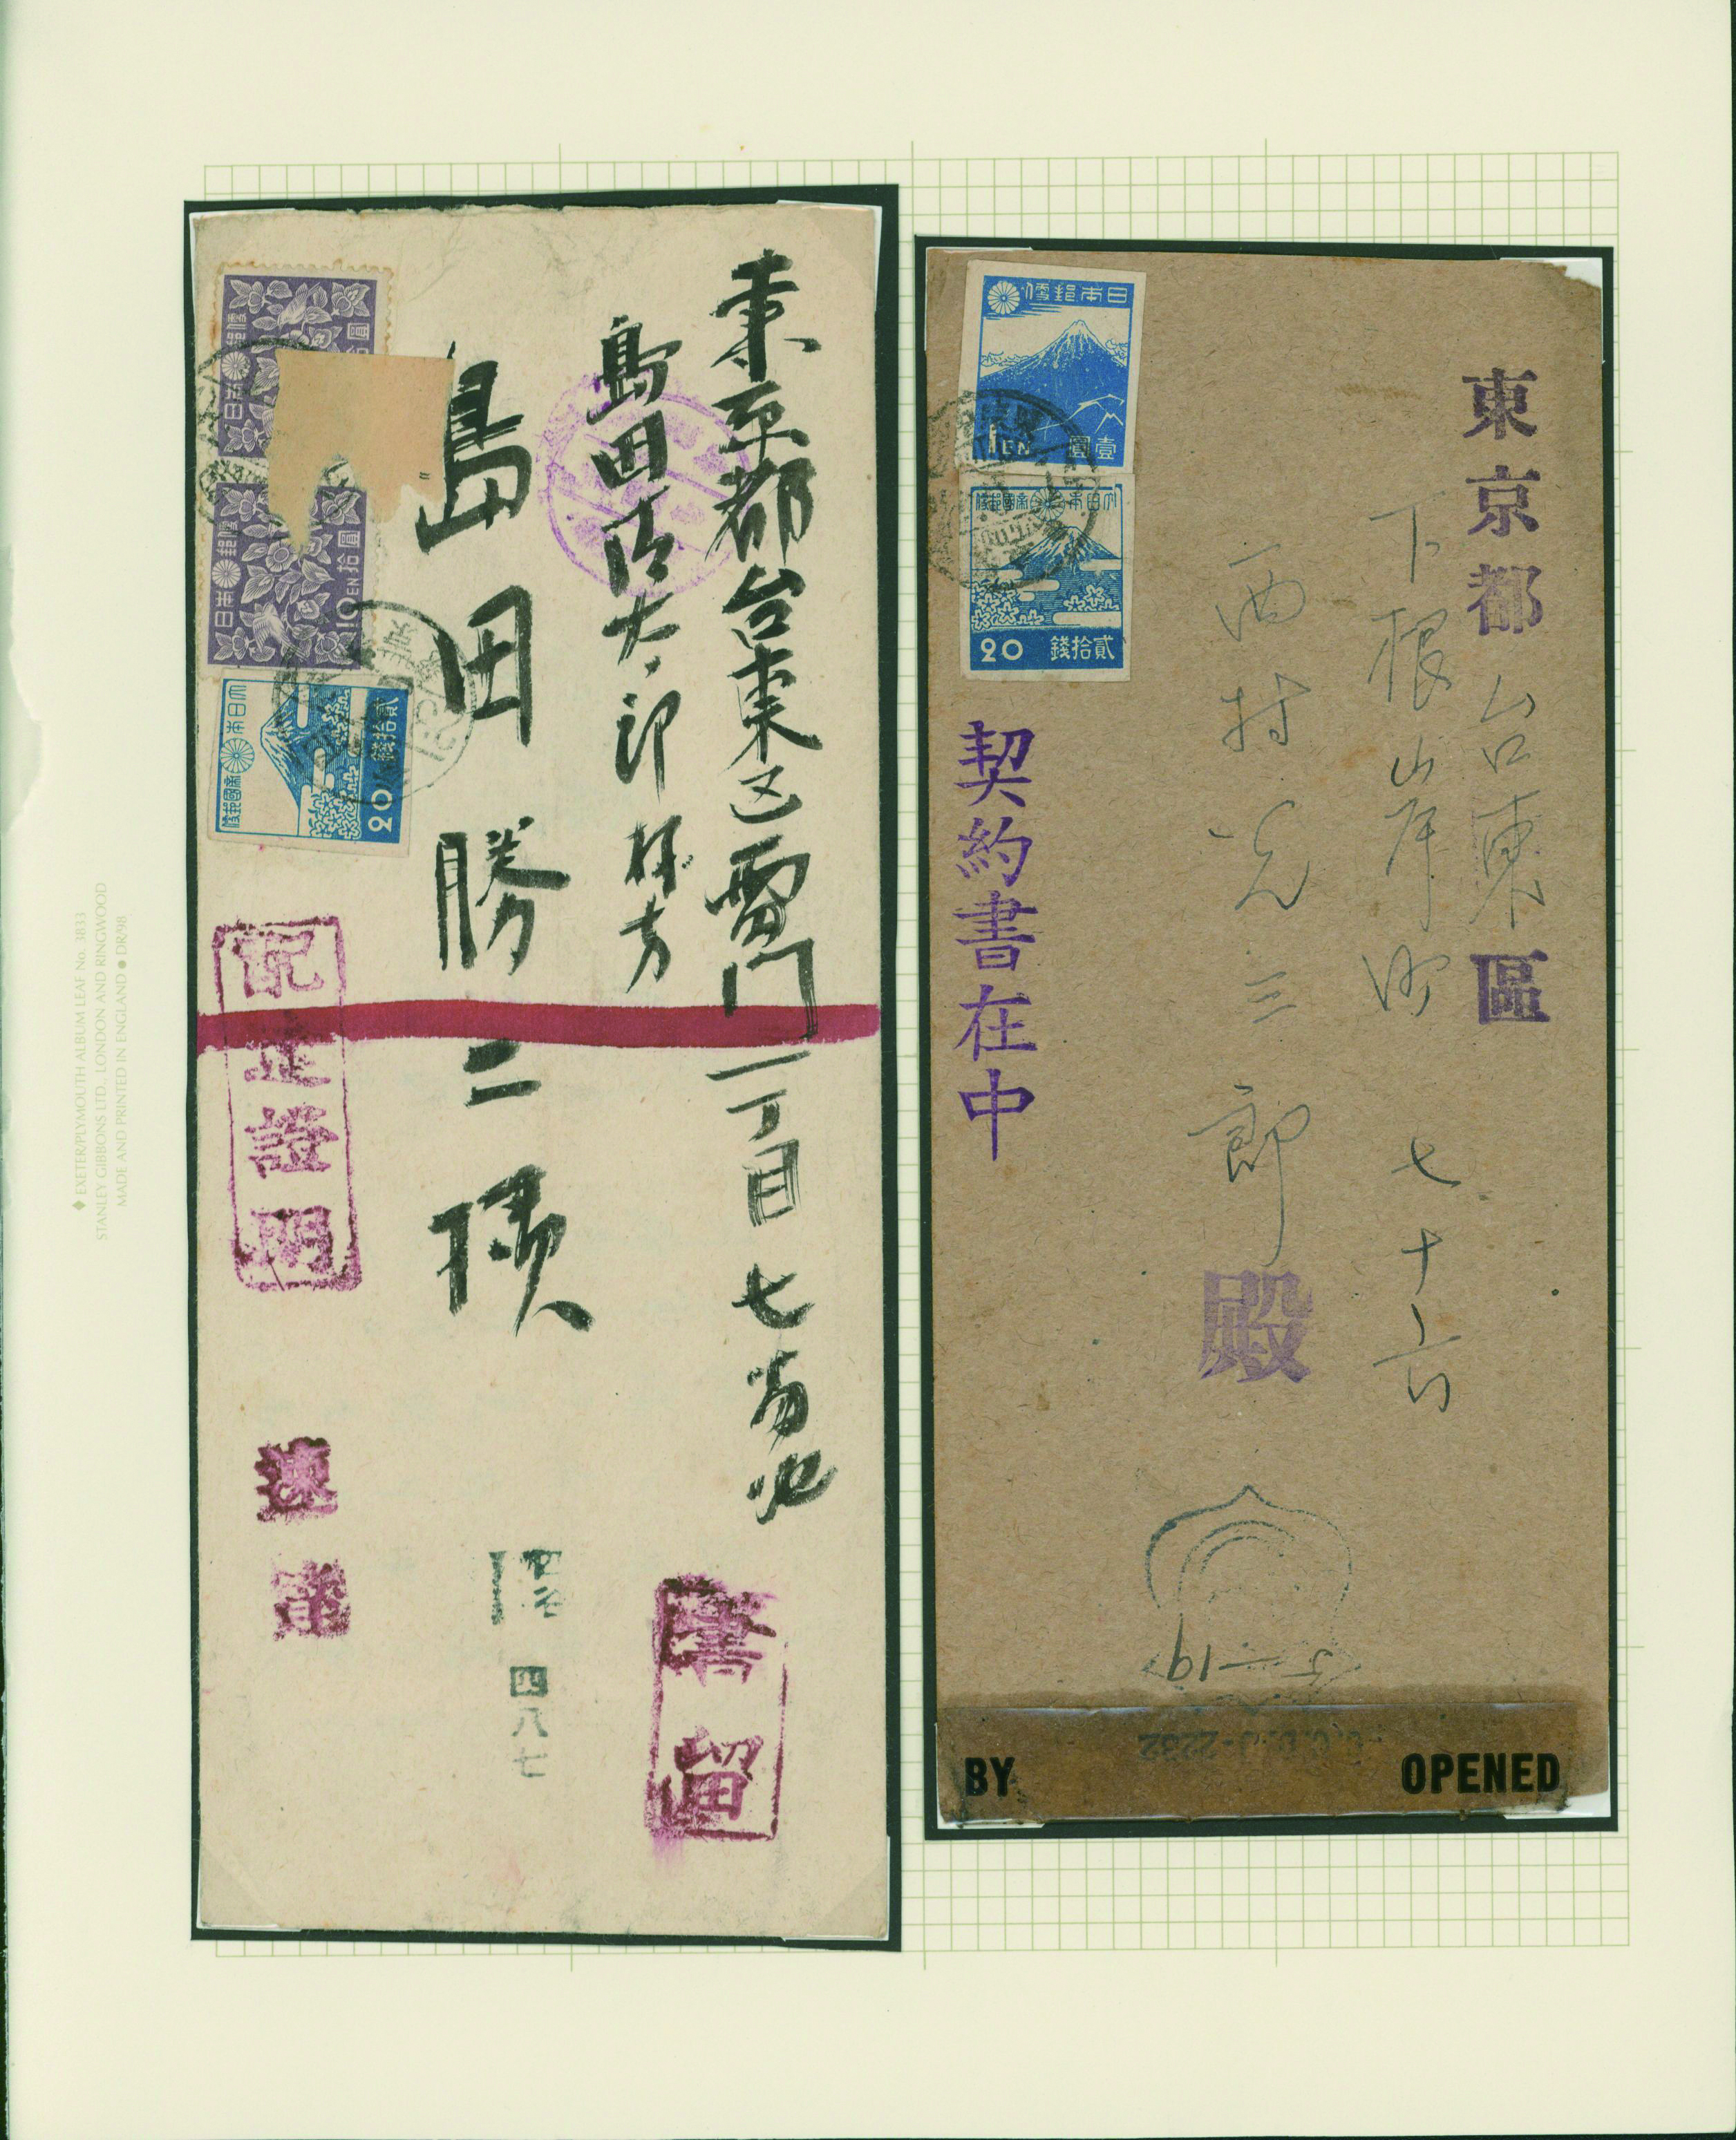 東京都台東区雷門一丁目七番地
島田
島田勝二様
日本郵便
拾圓
日本郵便
10EN拾圓
大日本帝國郵便
20 貳拾錢
配達證明
速達
四八七
書留
東京都台東區
下根岸町 七十六
西村光三郎殿
日本郵便
1EN 壹圓
大日本帝國郵便
20 貳拾錢
契約書在中
C.C.D.J-2232
BY OPENED
◆ EXETER/PLYMOUTH ALBUM LEAF No. 3833
STANLEY GIBBONS LTD., LONDON AND RINGWOOD
MADE AND PRINTED IN ENGLAND ● DR/98